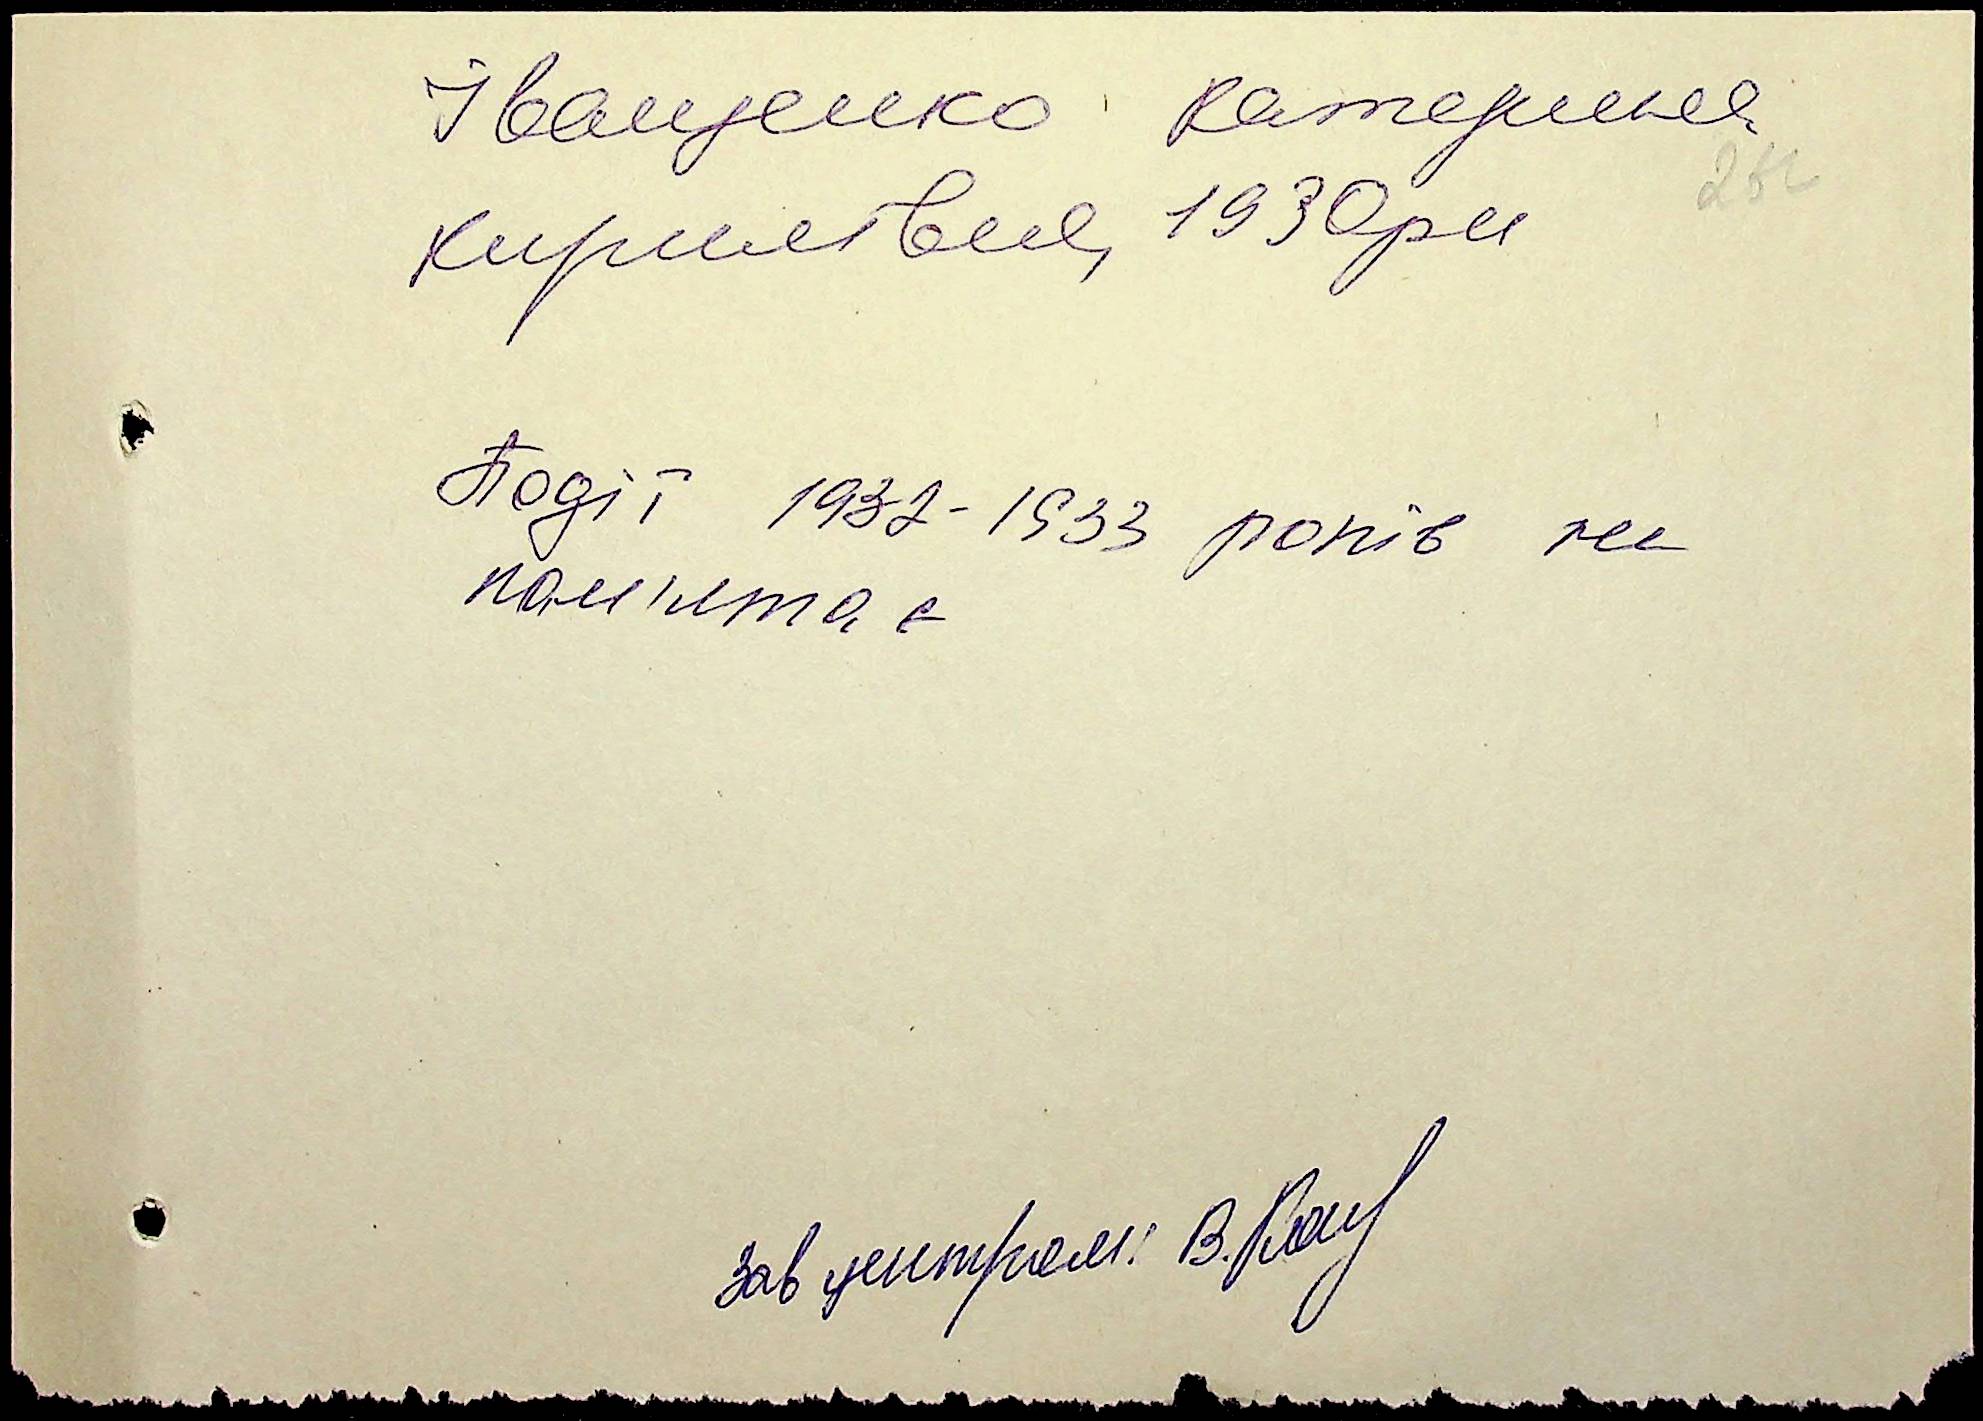 Іващенко Катерина
Кирилівна, 1930рн
Події 1932-1933 років не
пам'ятає
Зав центром: В.